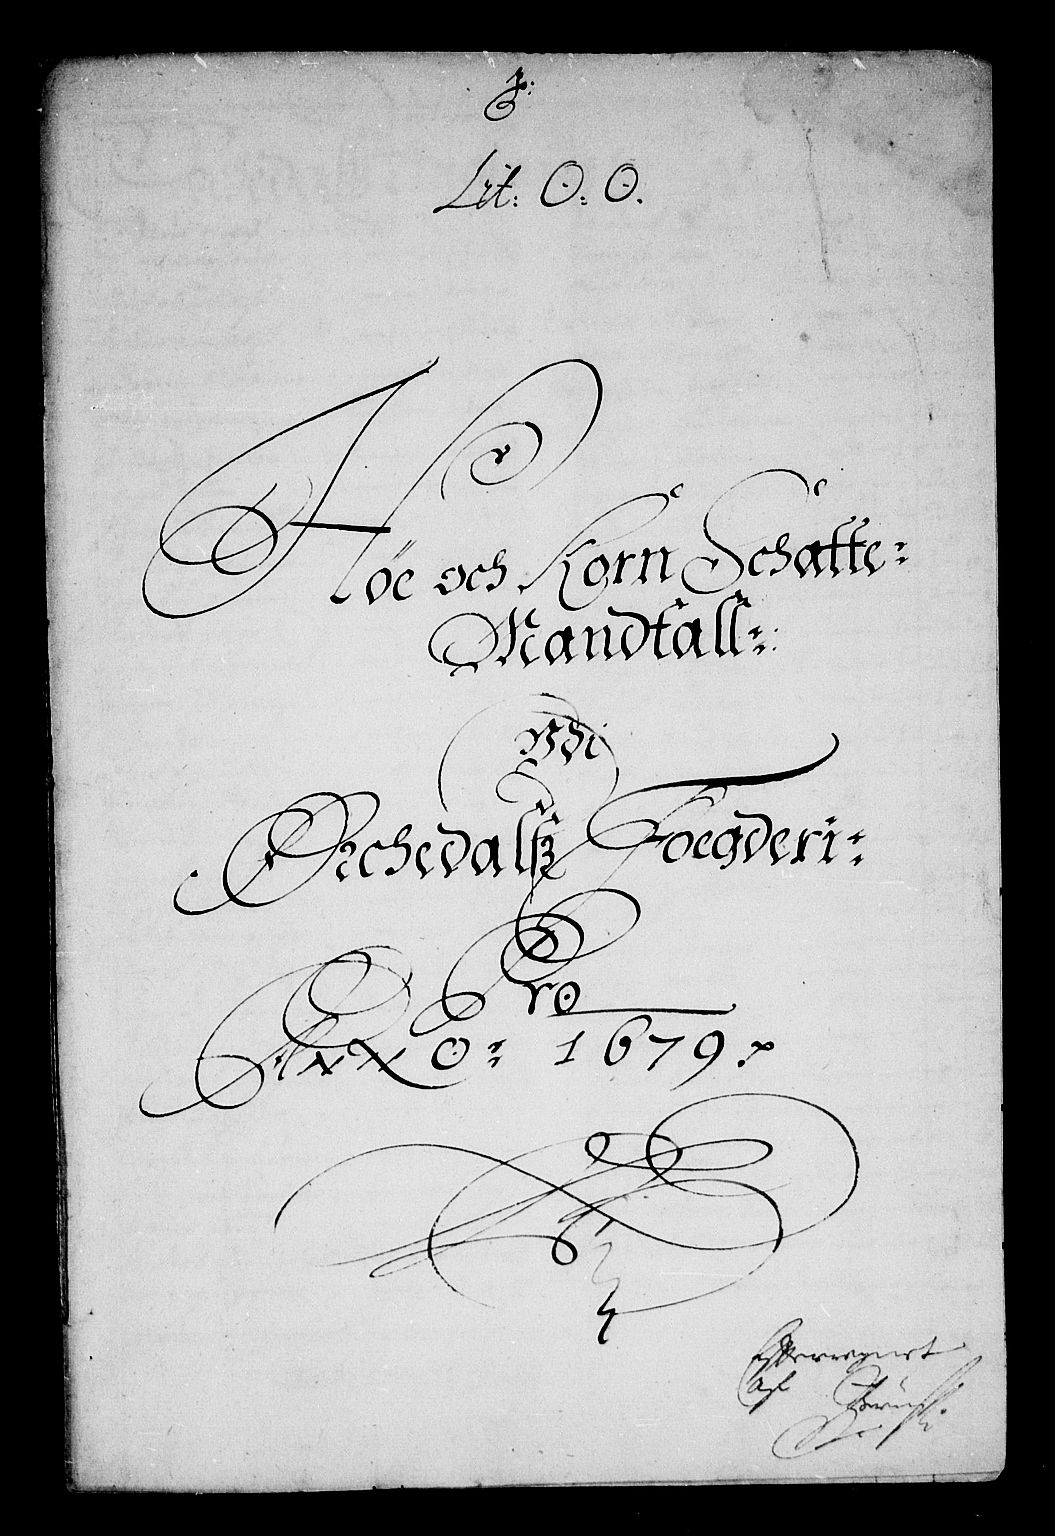 Lit: O: O.
Höe och Korn Schatte-
Mandtall:
Vdi
Orchedalß Foegderi:
Pro
ANNO: 1679.
Efterregnet
Af